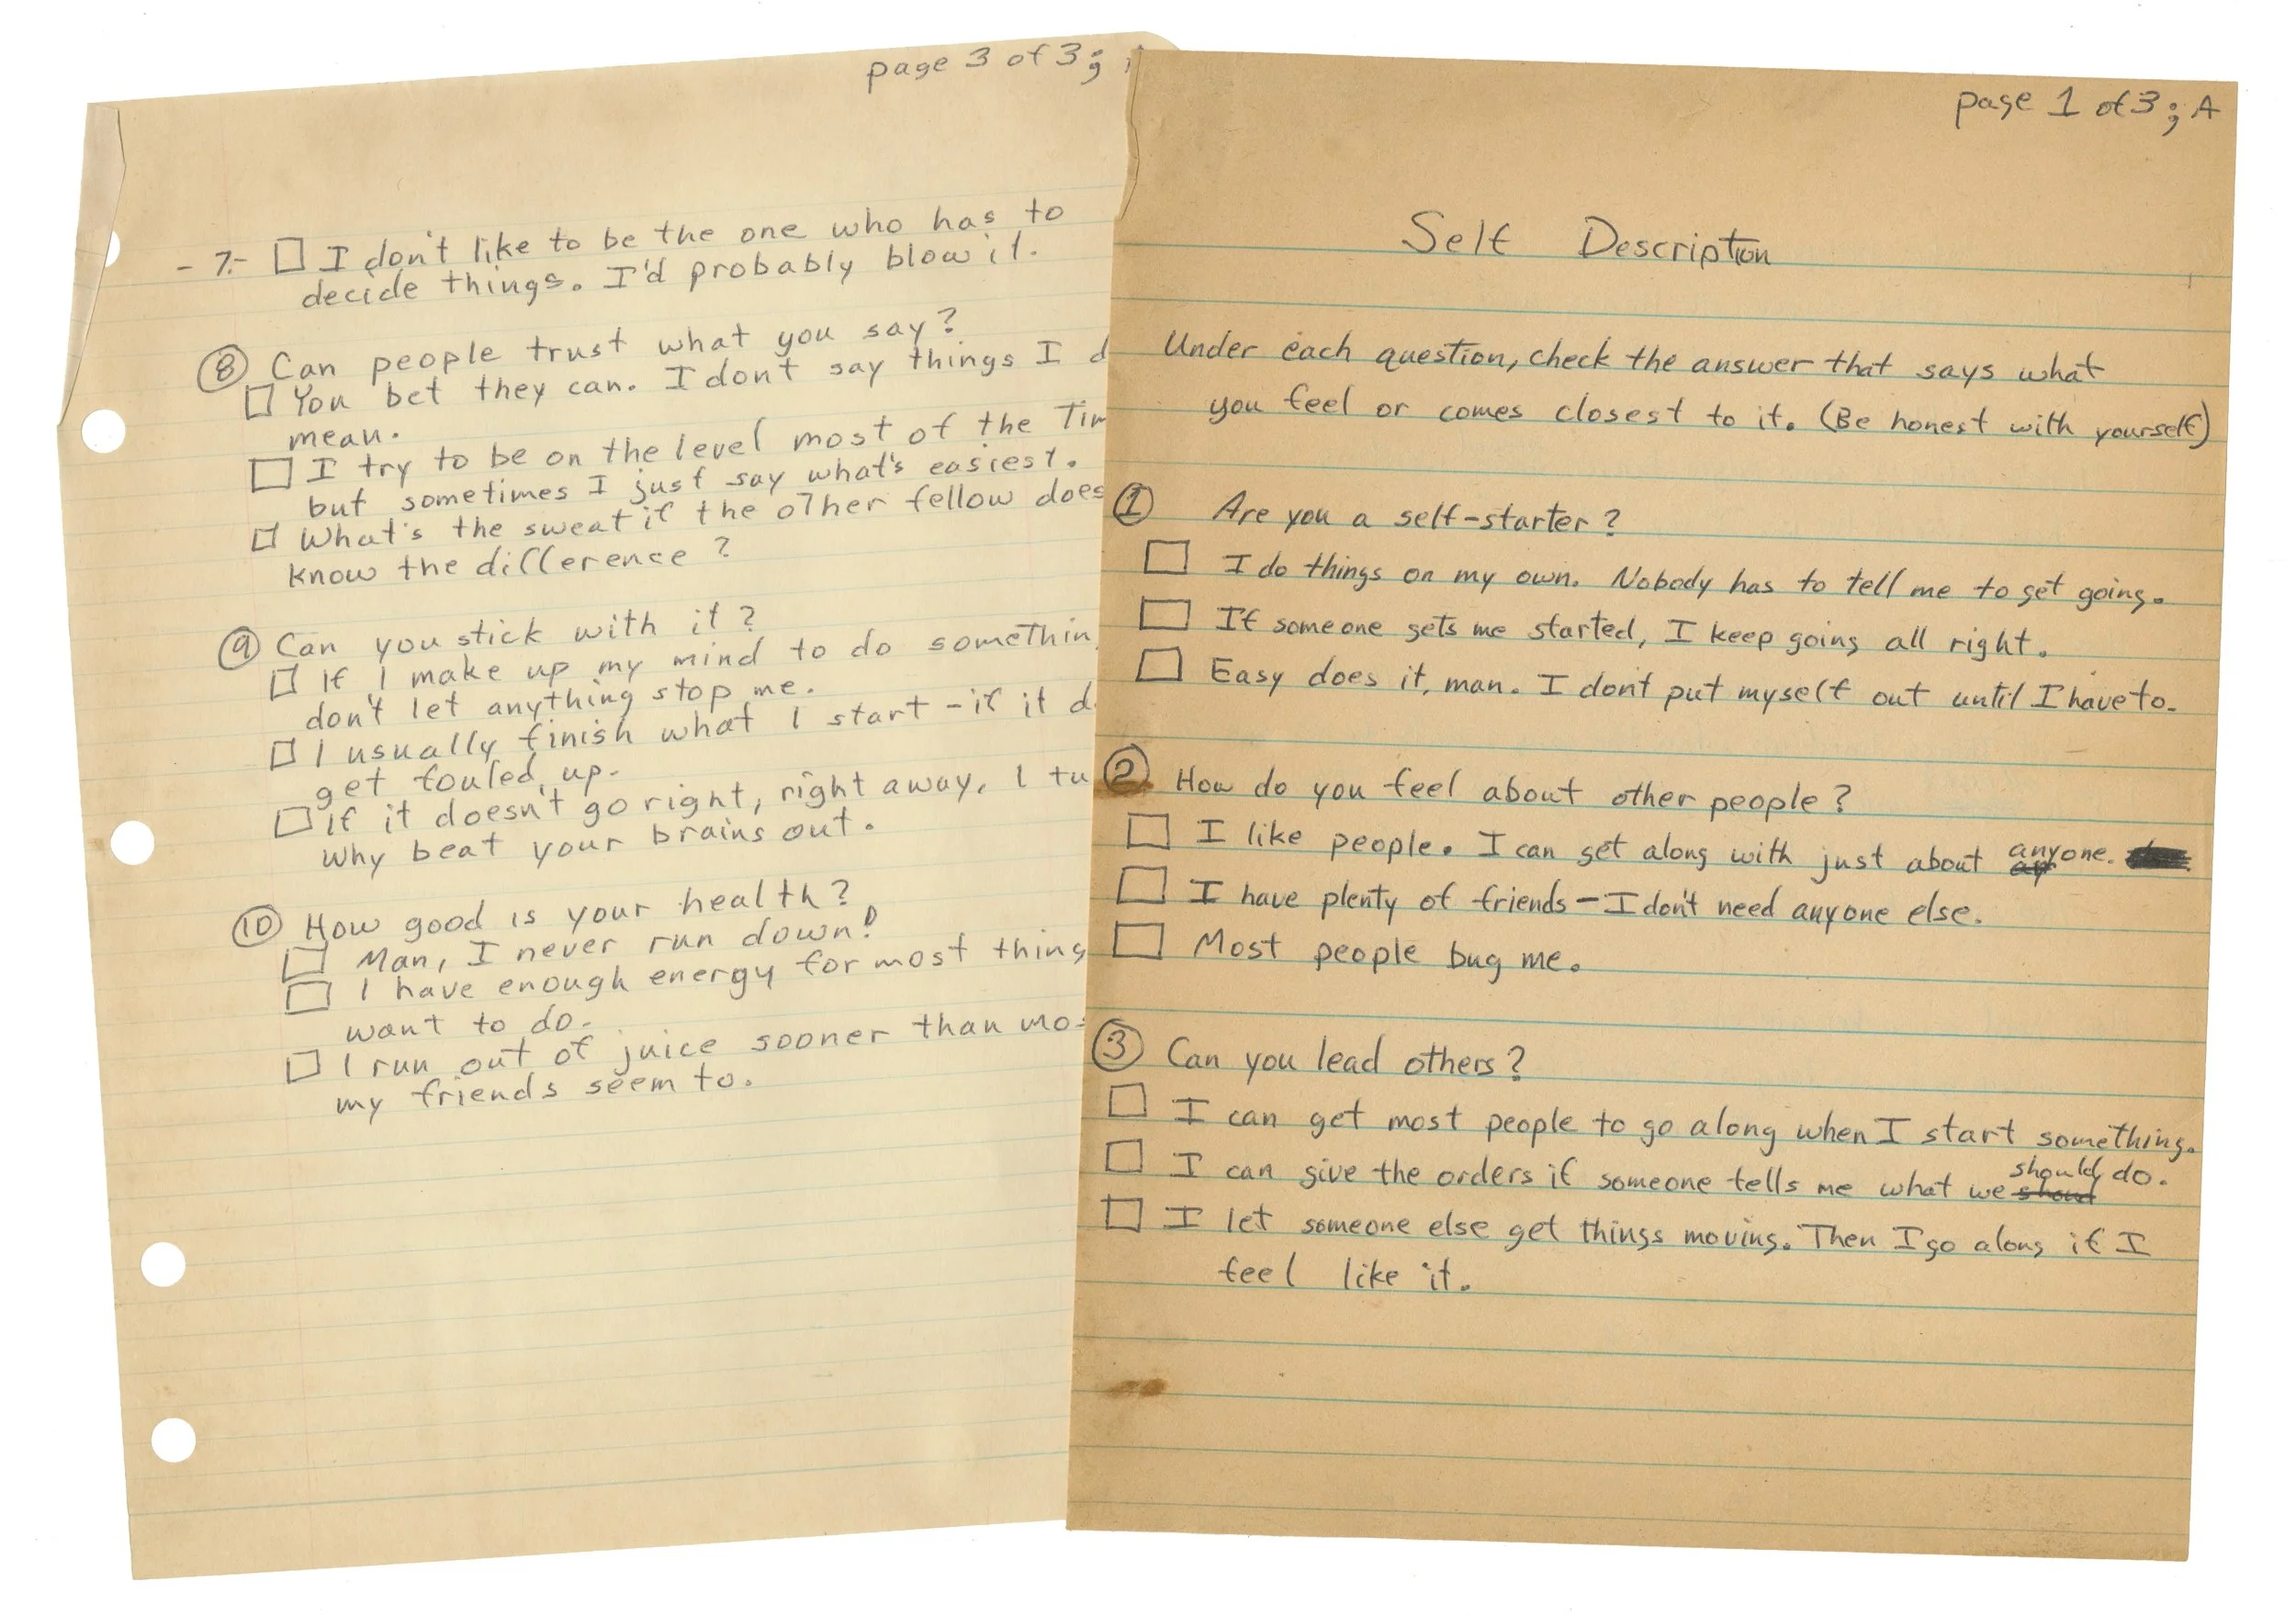 page 3 of 3;
- 7.- I don't like to be the one who has to
decide things. I'd probably blow it.
8 Can people trust what you say?
You bet they can. I dont say things I
mean.
I try to be on the level most of the
but sometimes I just say what's easiest.
What's the sweat if the other fellow
know the difference?
9 Can you stick with it?
If I make up my mind to do
don't let anything stop me.
I usually finish what I start - if it
get fouled up.
If it doesn't go right, right away, I
Why beat your brains out.
10 How good is your health?
Man, I never run down!
I have enough energy for most
want to do.
I run out of juice sooner than
my friends seem to.
page 1 of 3; A
Self Description
Under each question, check the answer that says what
you feel or comes closest to it. (Be honest with yourself)
1 Are you a self-starter?
I do things on my own. Nobody has to tell me to get going.
If someone gets me started, I keep going all right.
Easy does it, man. I don't put myself out until I have to.
2 How do you feel about other people?
I like people. I can get along with just about anyone.
I have plenty of friends - I don't need anyone else.
Most people bug me.
3 Can you lead others?
I can get most people to go along when I start something.
I can give the orders if someone tells me what we should do.
I let someone else get things moving. Then I go along if I
feel like it.